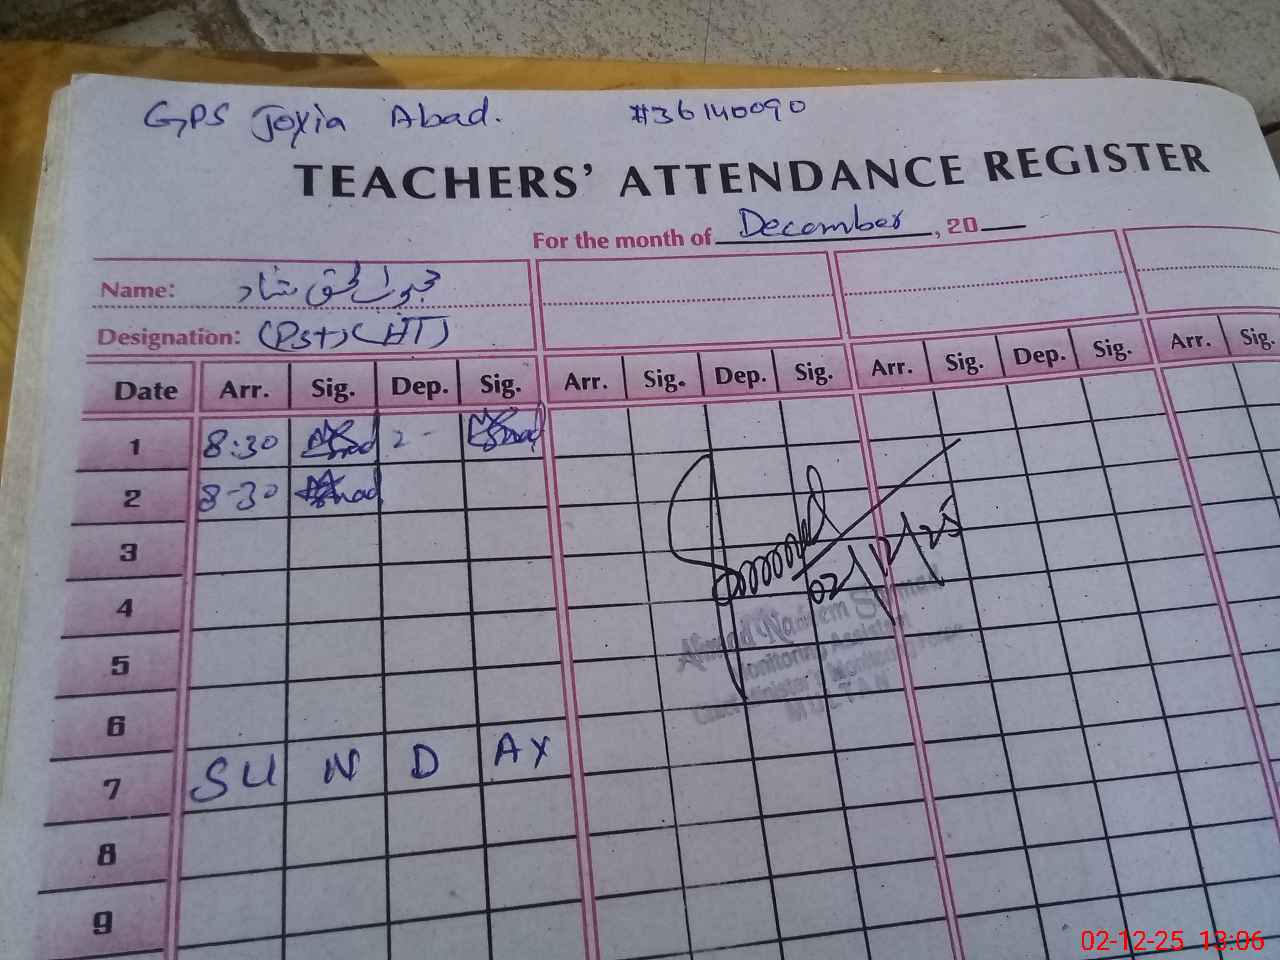 GPS Joyia Abad. #36140090
TEACHERS' ATTENDANCE REGISTER
For the month of December, 20
Name:
Designation: (PST) (HT)
Date Arr. Sig. Dep. Sig. Arr. Sig. Dep. Sig. Arr. Sig. Dep. Sig. Arr. Sig.
1 8:30 2-
2 8-30
3
4
02/12/25
5
Monitoring Assistant
Chief Minister's Monitoring Force
MULTAN
6
7 SUNDAY
8
9
02-12-25 13:06